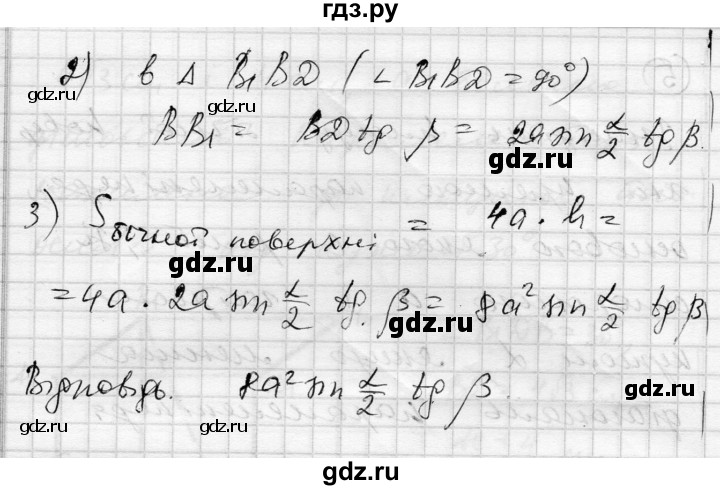 гдз.ру
2) в Δ B₁BD (∠B₁BD = 90°)
gdz.ru gdz.ru
BB₁ = BD tg β = 2a sin α/2 tg β.
gdz.ru
3) S бічної поверхні = 4a · h =
gdz.ru gdz.ru
= 4a · 2a sin α/2 tg β = 8a² sin α/2 tg β
gdz.ru
Відповідь. 8a² sin α/2 tg β.
gdz.ru gdz.ru
gdz.ru
gdz.ru